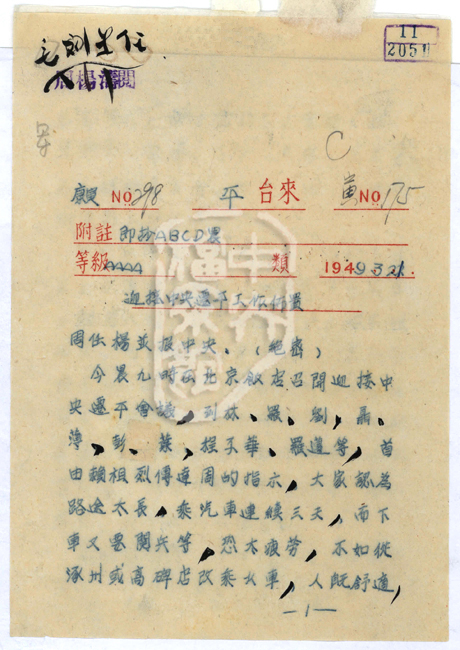 11
2051
毛劉主任
周楊濤閱
C
NO.298
平台來
NO.175
附註 即抄ABCD晨
等級AAAA 類 1949.3.21.
迎接中央遷平工作佈置
周任楊並報中央、（絕密）
今晨九時在北京飯店召開迎接中
央遷平會議，到林、羅、劉，聶、
薄、彭、葉、程子華、羅道等，首
由賴祖烈傳達周的指示，大家認為
路途太長，乘汽車連續三天，而下
車又要閱兵等，恐太疲勞，不如從
涿州或高碑店改乘火車，人既舒適，
—1—